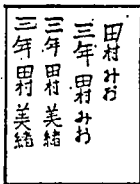 田村みお
三年田村みお
三年田村美緒
三年田村美緒